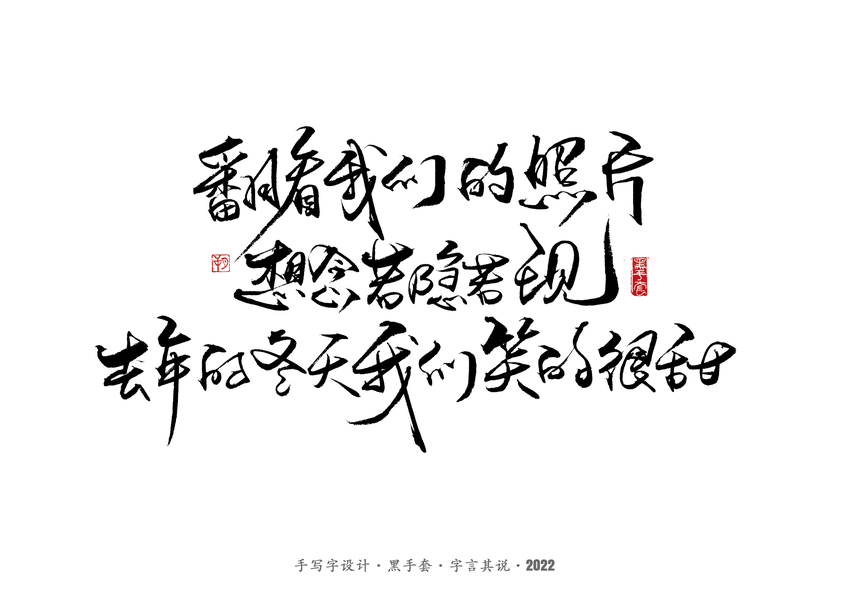 翻看我们的照片
想念若隐若现
去年的冬天我们笑的很甜
手写字设计·黑手套·字言其说·2022